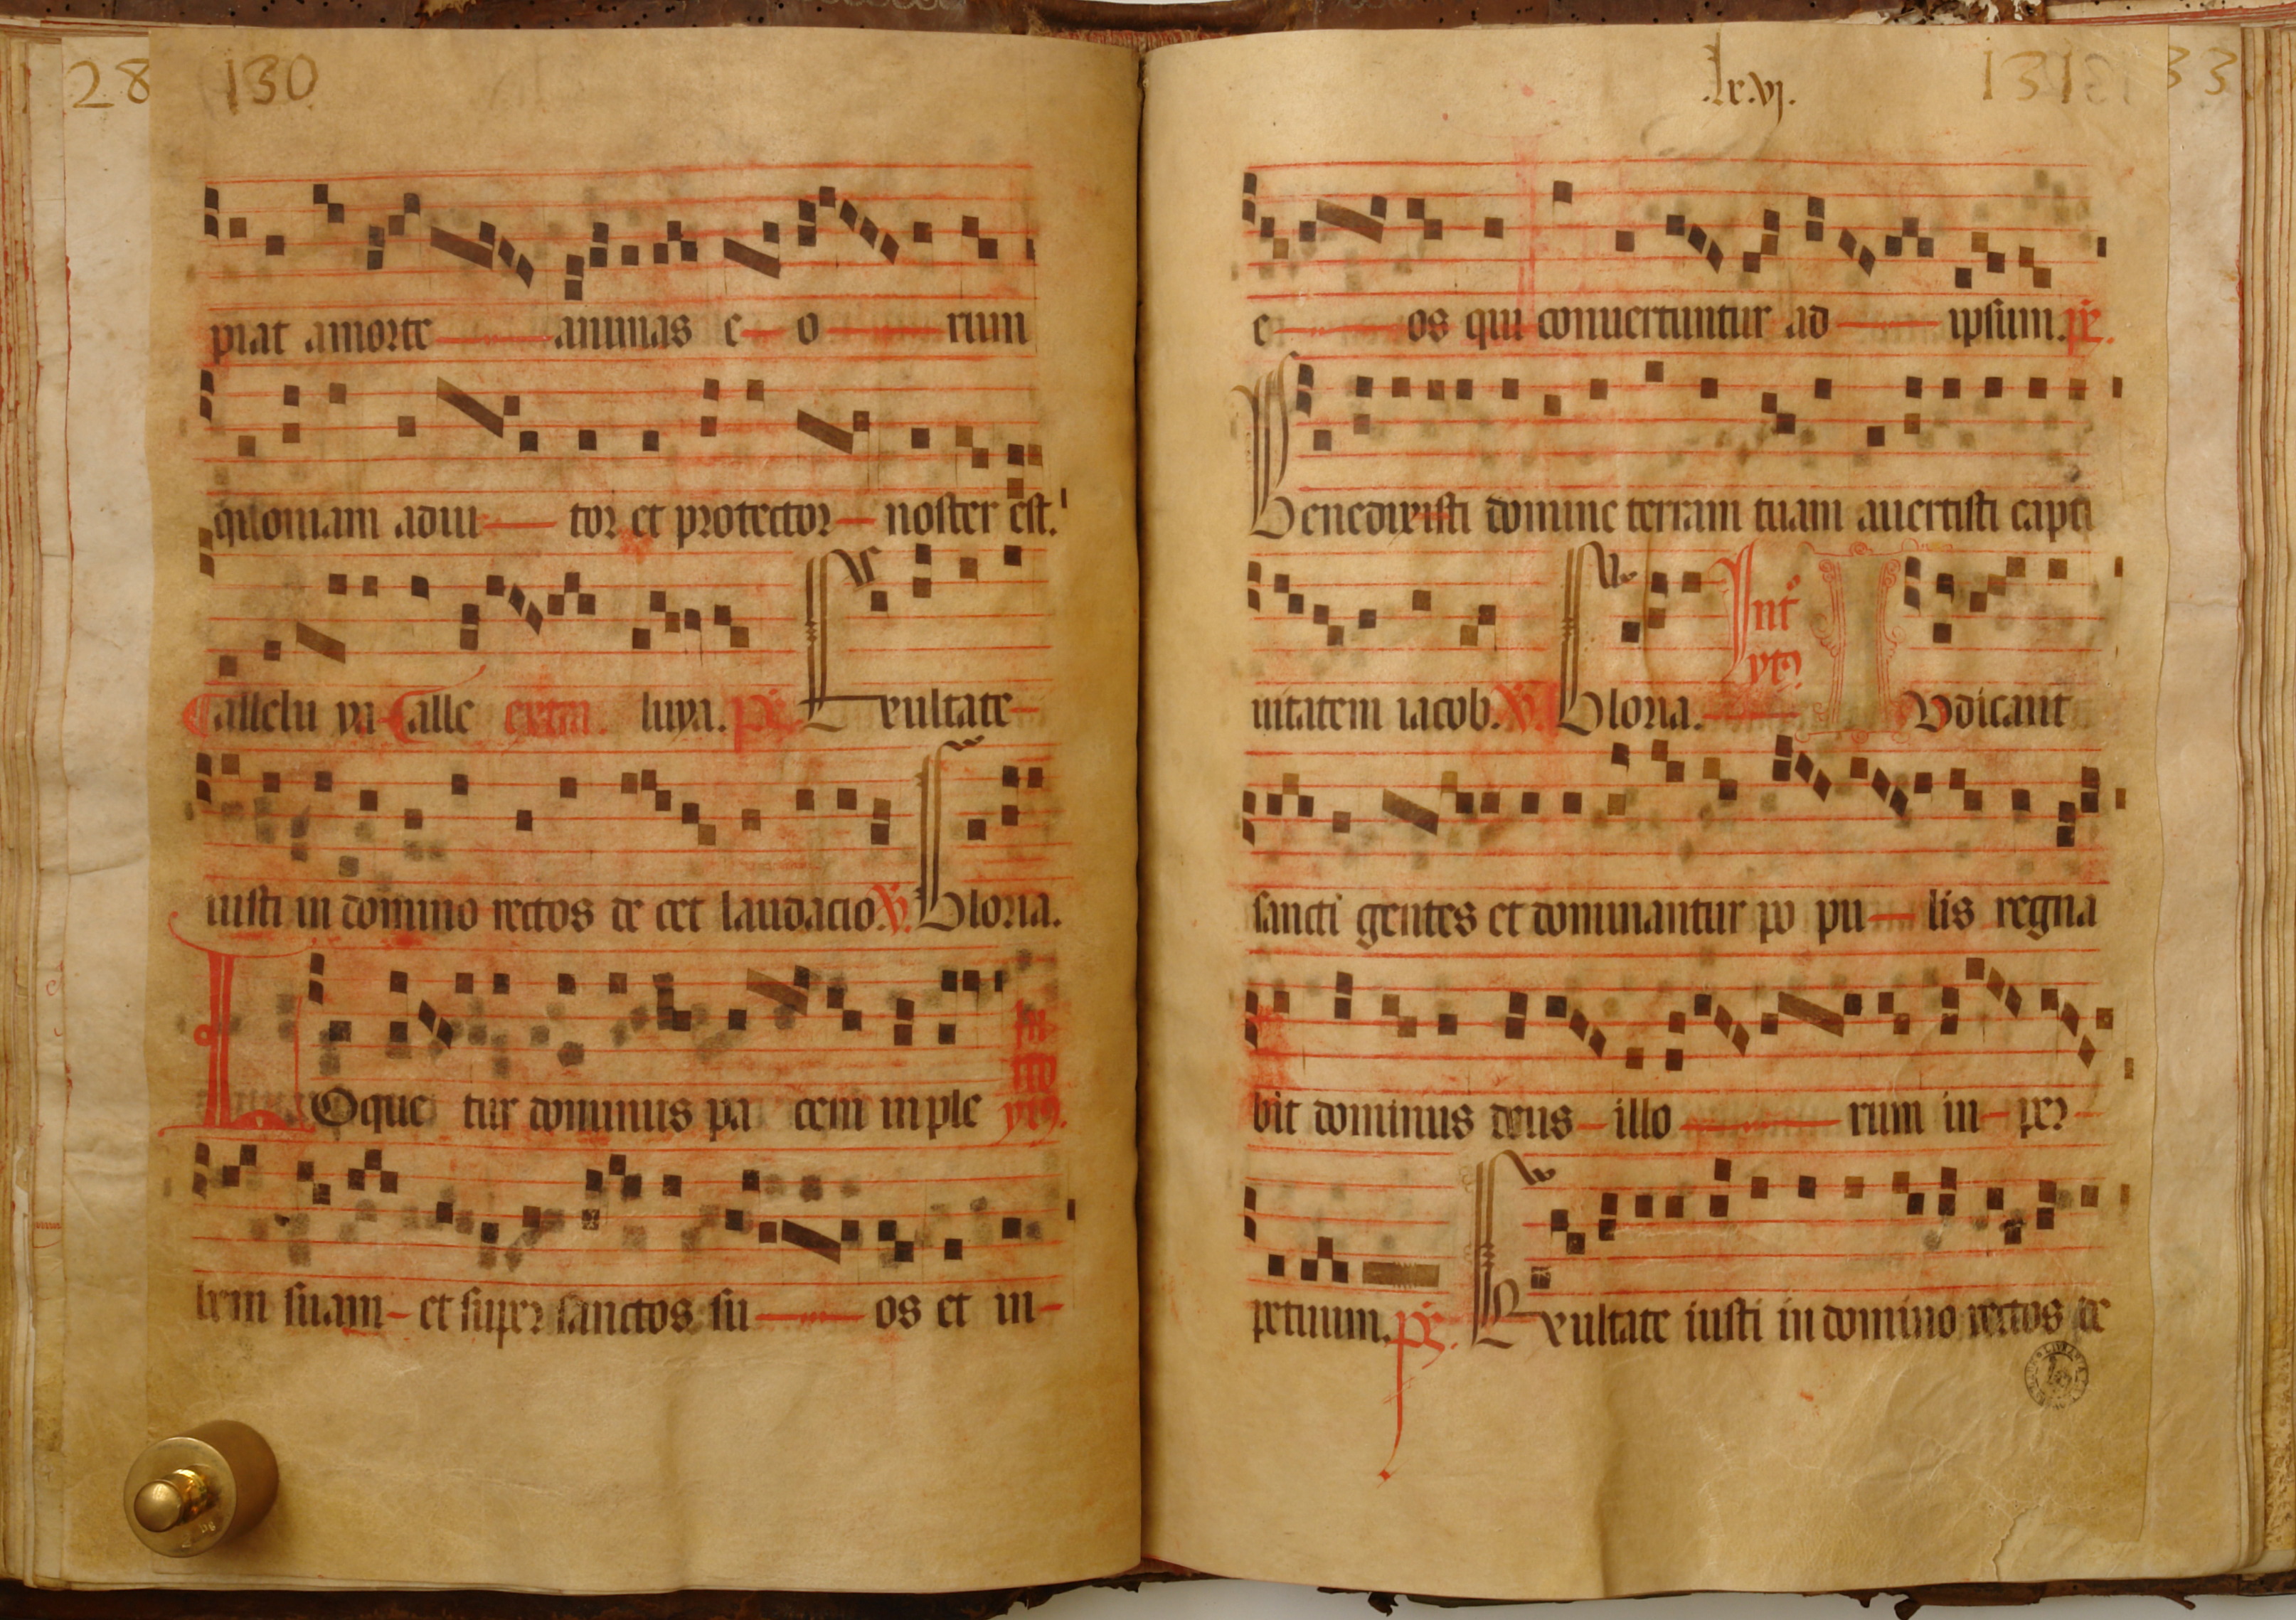 28
130
piat a morte animas e o rum
quoniam adiu tor et protector noster est.
allelu ya alle extra. luya. ps. Exultate
iusti in domino rectos de cet laudacio. V. Gloria.
LOque tur dominus pa cem in ple
In
tro
ytꝯ.
bem suam et super sanctos su os et in
.lxvj.
131
33
e os qui conuertuntur ad ipsum. ps.
Benedixisti domine terram tuam auertisti capti
uitatem iacob. V. Gloria. IVdicant
Int
ytꝯ.
sancti gentes et dominantur po pu lis regna
bit dominus deus illo rum in per
petuum. ps. Exultate iusti in domino rectos de